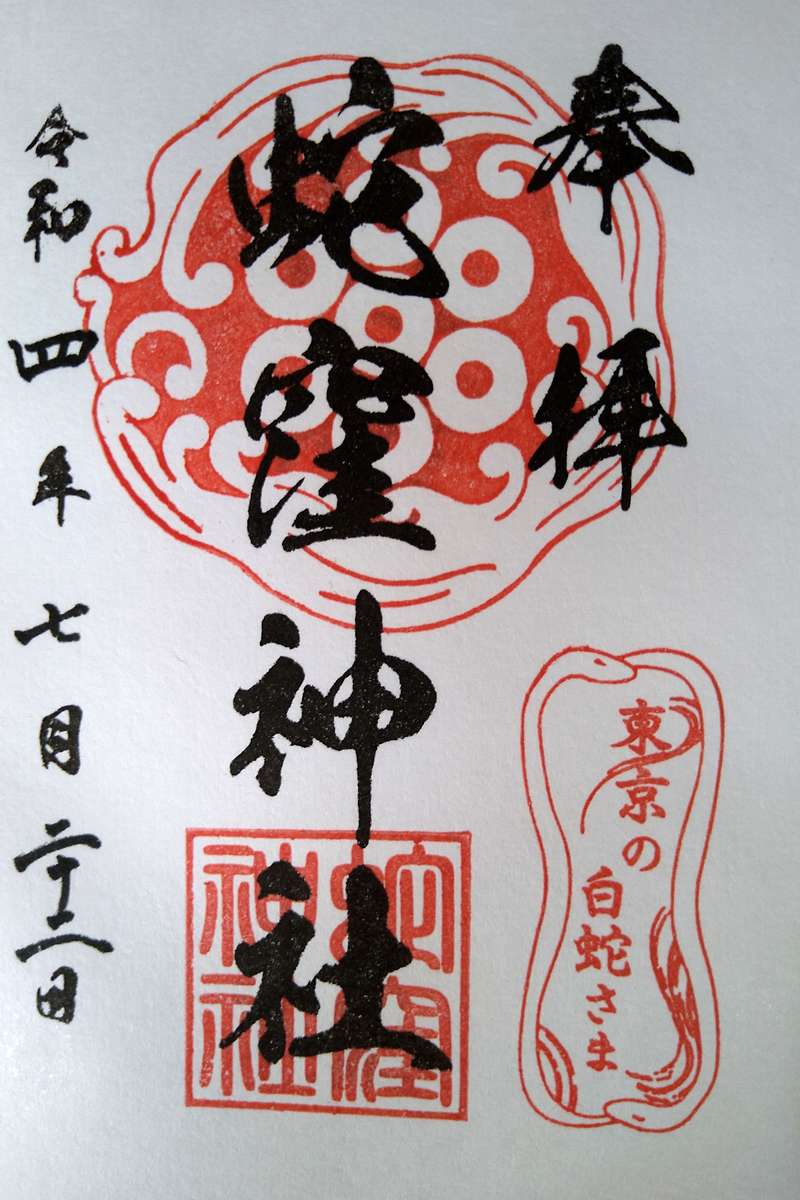 奉拝
東京の
白蛇さま
蛇窪神社
蛇窪
神社
令和四年七月二十二日